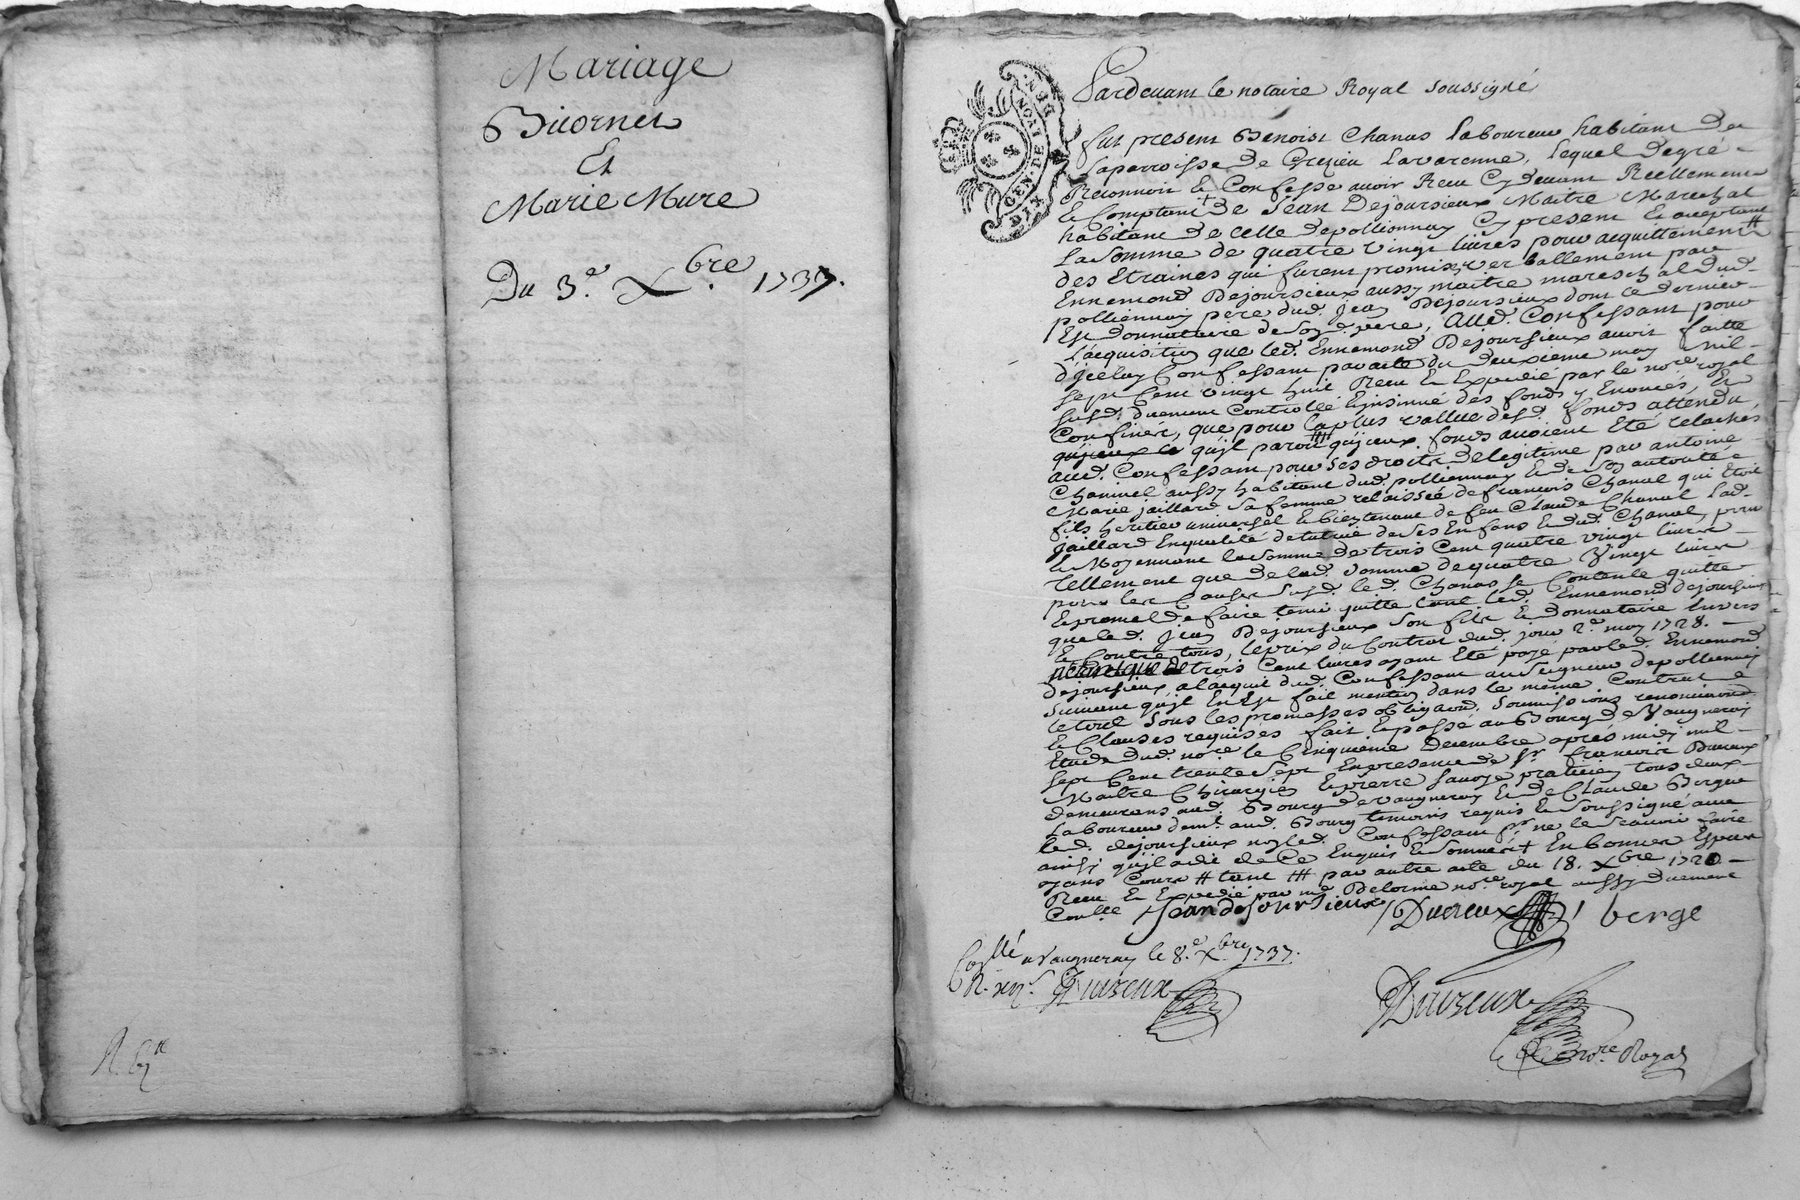 Mariage
Bicornet
Et
Marie Mure
Du 3.e Xbre 1737.
Pardevant le notaire Royal soussigné
fut present Benoist Chanas laboureur habitant de
la parroisse de Grezieu Lavarenne, lequel degré
Reconnoit & Confesse avoir Receu Cydevant Reellement
& Comptant + de Jean Dejoursieux Maitre Marechal
habitant de celle depollionnay Cy present & acceptant
la somme de quatre vingt livres pour acquittement #
des Etraines qui furent promises verballement par
Ennemond Dejoursieux aussy maitre mareschal dud.
pollionnay pere dud. Jean Dejoursieux dont ce dernier
Est donnataire de sond. pere, aud. Confessant pour
l'acquisition que led. Ennemond Dejoursieux avoit faitte
d'Jceluy Confessant par acte du deuxieme may mil
sept Cent vingt huit Receu & Expedié par le no.re royal
susd. duement Controllé & jnsinué des fonds y Enoncés, &
Confinés, que pour la plus vallue desd. fonds attendu,
qu'jl paroit qu'jceux fonds avoient Eté relachés
aud. Confessant pour ses droits de legitime par antoine
aussy habitant dud. pollionnay & de son autorité
Marie jaillard sa femme relaissée de françois Chanal qui Etoit
fils heritier universel & bientenant de feu Claude Chanal lad.
jaillard En qualité de tutrice de ses Enfans & dud. Chanal, pour
& Moyennant la somme de trois Cent quatre vingt livres
Tellement que de lad. somme de quatre Vingt livres
pour les Causes susd. led. Chanas se Contente quitte
& promet de faire tenir quitte tant led. Ennemond dejoursieux
que led. Jean Dejoursieux son fils & donnataire Envers
& Contre tous, le prix du Contrat dud. jour 2.e may 1728.
de trois Cent livres ayant Eté payé par led. Ennemond
dejoursieux, a lacquit dud. Confessant au seigneur depollionnay
suivant qu'jl En Est fait mention dans le meme Contrat &
le tout sous les promesses obligaon. soumissions renonciations
& Clauses requises fait & passé au Bourg de Vaugneray
Etude dud. no.re le Cinquieme Decembre apres midy mil
sept Cent trente sept En presence de Sr. françois
Maitre Chirurgien & pierre savoye praticien tous deux
demeurans aud. Bourg de vaugneray & de Claude Berge
Laboureur dem.t aud. Bourg temoins requis & soussigné avec
led. dejoursieux non led. Confessant pr. ne le scavoir faire
ainsy qu'jl a dit de Ce Enquis & sommés + En bonnes Especes
ayans Cours # tant ## par autre acte du 18. Xbre 1720
Receu & Expedié par me Delorme no.re royal aussy duement
Con.llé Jean dejoursieux
berge
Con.llé a Vaugneray le 8.e Xbre 1737.
no.re Royal